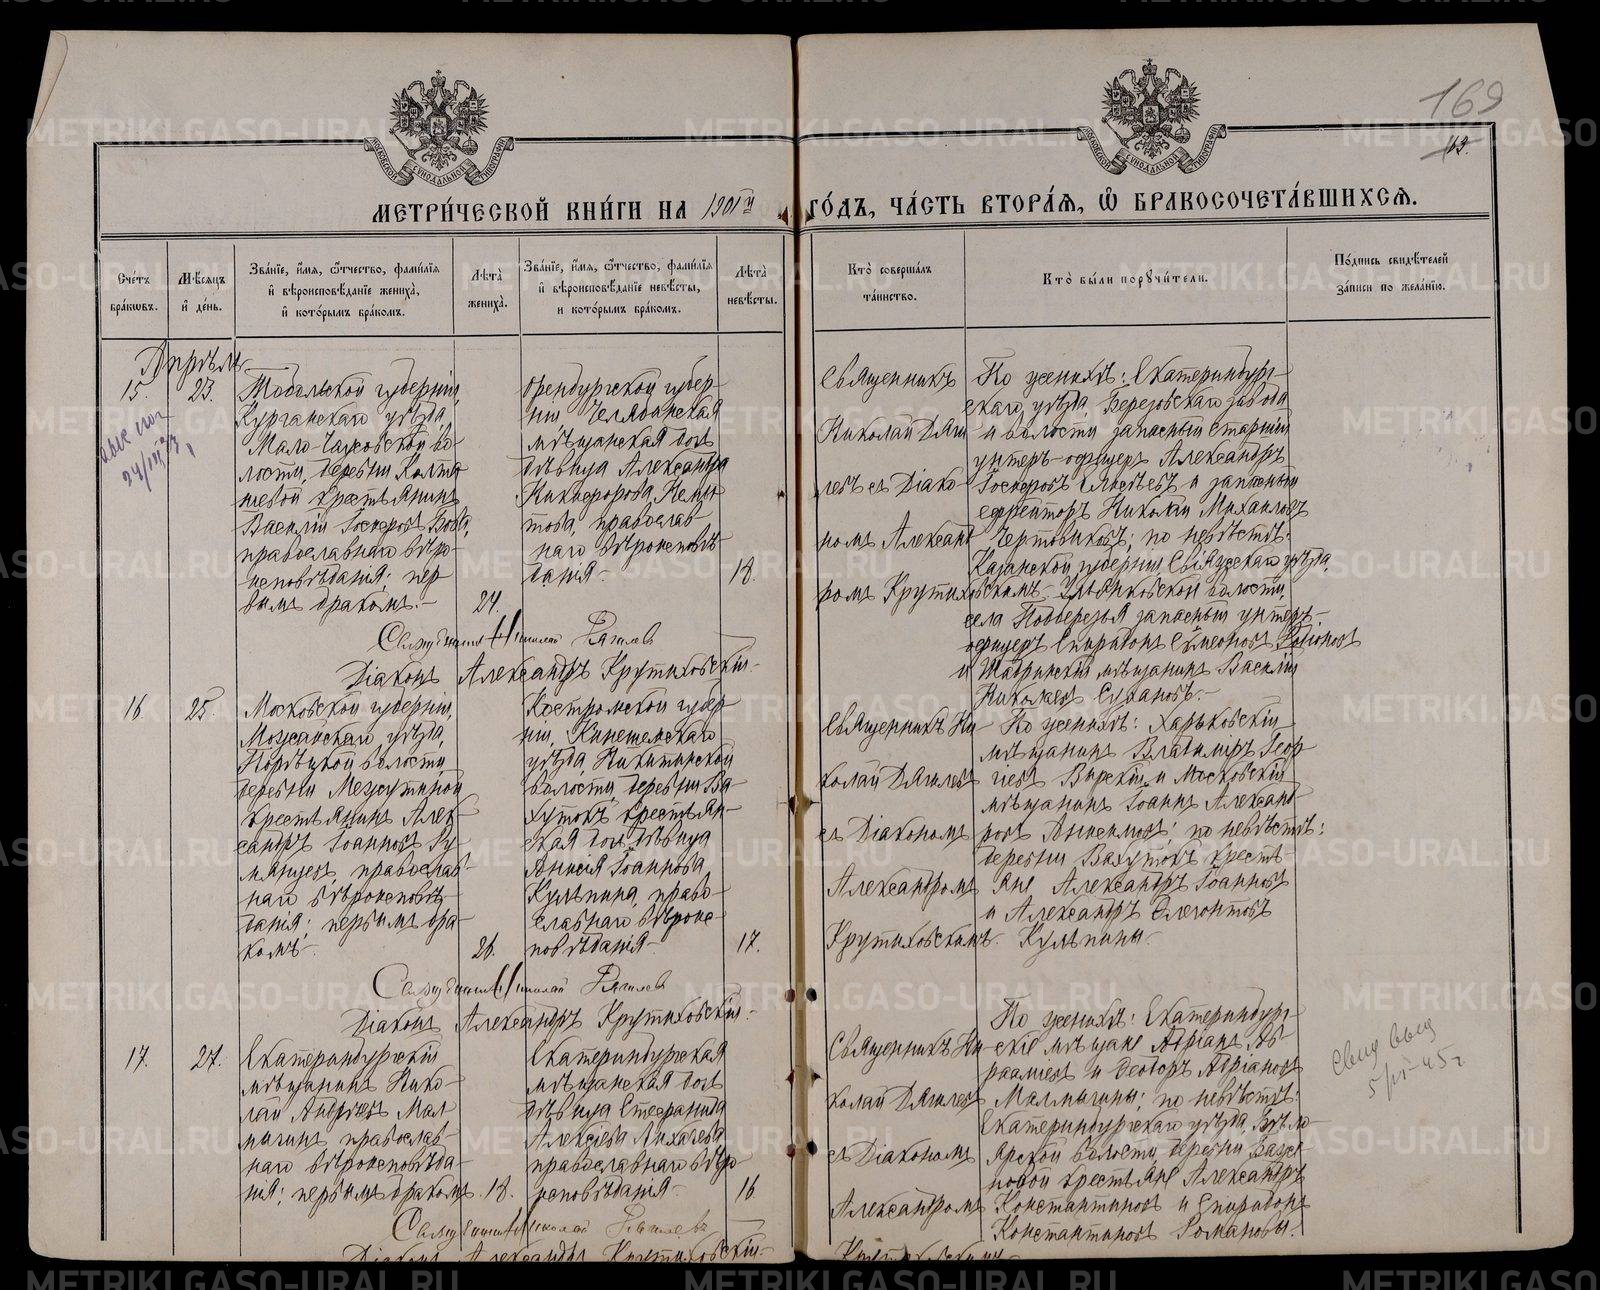 169
МЕТРИ́ЧЕСКОЙ КНИ́ГИ НА 1901й ГО́ДЪ, ЧА́СТЬ ВТОРА́Я, Ѽ БРАКОСОЧЕТА́ВШИХСЯ.
Сче́тъ бра́ковъ.
Мѣ́сяцъ и́ де́нь.
Зва́нїе, и́мя, ѻ́тчество, фами́лїя и́ вѣроисповѣ́данїе жениха̀, и́ кото́рымъ бра́комъ.
Лѣта̀ жениха̀.
Зва́нїе, и́мя, ѻ́тчество, фами́лїя и́ вѣроисповѣ́данїе невѣ́сты, и кото́рымъ бра́комъ.
Лѣта̀ невѣ́сты.
Кто̀ соверша́лъ та́инство.
Кто̀ бы́ли порꙋчи́тели.
По́дпись свидѣ́телей за́писи по жела́нїю.
Апрѣль
15.
23.
Тобольской губерніи,
Курганскаго уѣзда,
Мало-Чаусовской во-
лости, деревни Колта
шевой крестьянинъ
Василій
православнаго вѣро-
исповѣданія; пер
вымъ бракомъ.-
24.
Оренбургской губер-
ніи Челябинская
мѣщанская дочь
дѣвица Александра
Никифорова
православ-
наго вѣроисповѣ
данія-
18.
Священникъ
Николай Дягилевъ
съ Діакономъ
Александромъ
Крутиховскимъ.
По женихѣ: Екатеринбург-
скаго уѣзда, Березовскаго завода
и волости запасный старшій
унтеръ-офицеръ Александръ
и запасный
ефрейторъ Николай Михаиловъ
Чертовиковъ; по невѣстѣ:
Казанской губерніи Свіяжскаго уѣзда,
Ульянковской волости,
села Подберезья запасный унтеръ-
офицеръ Спиридонъ Симеоновъ Родіоновъ
и Шадринскій мѣщанинъ Василій
Николаевъ Сухановъ.-
Священникъ Николай Дягилевъ
Діаконъ Александръ Крутиховскій.
16.
25.
Московской губерніи,
Можайскаго уѣзда,
Порѣцкой волости,
деревни Межутиной
крестьянинъ Алек-
сандръ Іоанновъ Ру-
мянцевъ, православ-
наго вѣроисповѣ
данія; первымъ бра-
комъ.
26.
Костромской губер-
ніи, Кинешемскаго
уѣзда, Никитинской
волости деревни Ва
хутокъ крестьян-
ская дочь дѣвица
Анисія Іоаннова
Кульпина, право-
славнаго вѣроис-
повѣданія-
17.
Священникъ Ни-
колай Дягилевъ
съ Діакономъ
Александромъ
Крутиховскимъ.
По женихѣ: Харьковскій
мѣщанинъ Владиміръ Геор-
гіевъ Вирскій и Московскій
мѣщанинъ Іоаннъ Александ-
ровъ Анисимовъ; по невѣстѣ:
деревни Вахутокъ кресть-
яне Александръ Іоанновъ
и Александръ Флегонтовъ
Кульпины.
Священникъ Николай Дягилевъ
Діаконъ Александръ Крутиховскій.-
17.
27.
Екатеринбургскій
мѣщанинъ Нико-
лай Андреевъ Мал
мыгинъ, православ-
наго вѣроисповѣда-
нія; первымъ бракомъ.
18.
Екатеринбургская
мѣщанская дочь
дѣвица Стефанида
Алексіева Лихачева,
православнаго вѣро-
исповѣданія.
16.
Священникъ Ни-
колай Дягилевъ
съ Діакономъ
Александромъ
Крутиховскимъ.
По женихѣ: Екатеринбург-
скіе мѣщане Адріанъ Ав-
раамовъ и Ѳеодоръ Адріановъ
Малмыгины; по невѣстѣ:
Екатеринбургскаго уѣзда, Бѣло-
ярской волости, деревни
крестьяне Александръ
Константиновъ и Спиридонъ
Константиновъ Романовы.
Священникъ Николай Дягилевъ
Діаконъ Александръ Крутиховскій.-
METRIKI.GASO-URAL.RU